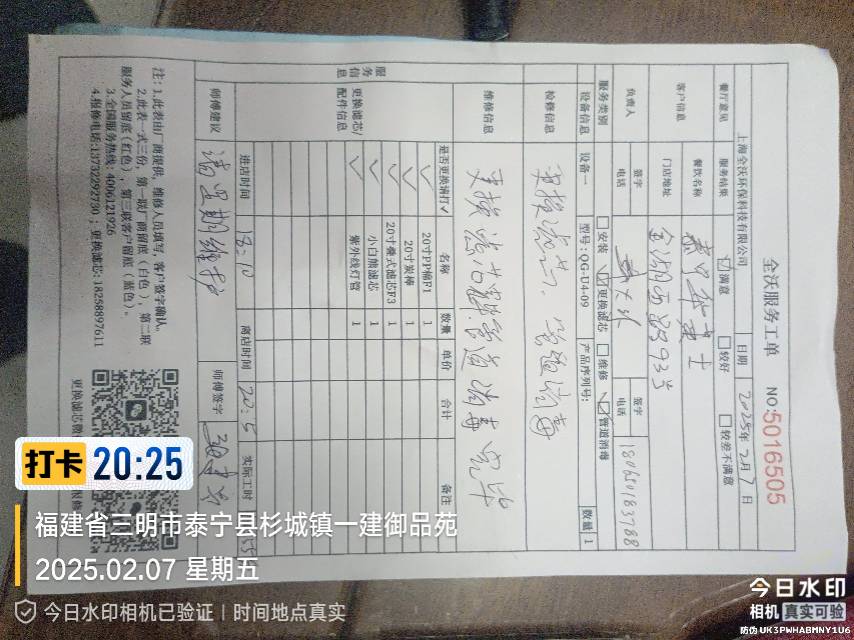 全沃服务工单
NO:5016505
上海全沃环保科技有限公司
日期 2025年2月7日
餐厅意见 服务结果 ☑满意 □较好 □较差不满意
客户信息 餐饮名称 泰宁华莱士
门店地址 金湖西路93号
负责人 签字 签字
电话 电话 180650183788
服务类别 □安装 ☑更换滤芯 □维修 ☑管道消毒
设备信息 设备一 型号:QG-U4-09 产品序列号: 数量 1
检修信息 更换滤芯、管道消毒
维修信息 更换滤芯跟管道消毒完毕
服务信息
更换滤芯/配件信息
是否更换请打✓ 名称 数量 单价 合计 备注
✓ 20寸PP棉F1 1
✓ 20寸炭棒 1
✓ 20寸叠式滤芯F3 1
✓ 小白熊滤芯 1
✓ 紫外线灯管 1
进店时间 18:10 离店时间 20:5 实际工时
师傅建议 请定期维护 师傅签字
注:1.此表由厂商提供,维修人员填写,客户签字确认。
2.此表一式三份,第一联厂商留底(白色),第二联
服务人员留底(红色),第三联客户留底(蓝色)。
3.全国服务热线:4006121926
4.报修电话:13732292730;更换滤芯:18258897611
更换滤芯微
报修
打卡 20:25
福建省三明市泰宁县杉城镇一建御品苑
2025.02.07 星期五
今日水印相机已验证 | 时间地点真实
今日水印
相机 真实可验
防伪 UK3PWHABMNY1U6